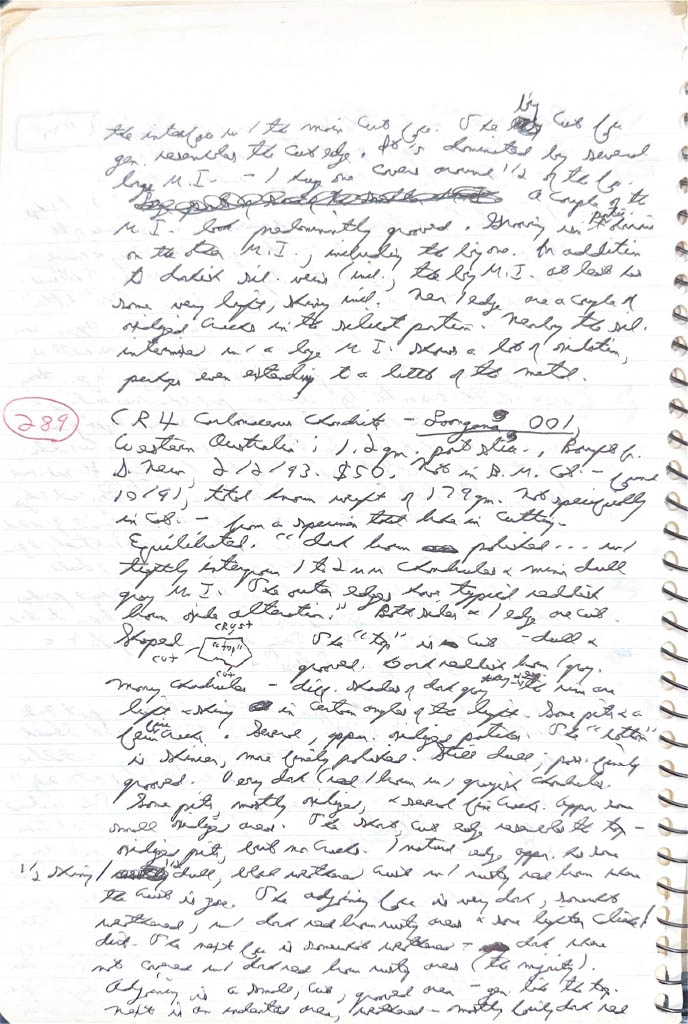 big
the interface w/ the main cut face. The cut face
gen. resembles the cut edge. It's dominated by several
large M.I. - 1 huge one covers around 1/2 of the face.
A couple of the
M.I. look predominantly grooved. Grooving isn't
on the other M.I., including the big one. In addition
to darkish sil. veins/incl., the big M.I. at least has
some very light, shiny incl. Near 1 edge are a couple of
oxidized cracks in the silicate portion. Nearby the sil.
intermixed w/ a large M.I. shows a lot of oxidation,
perhaps even extending to a little of the metal.
289
CR4 Carbonaceous Chondrite - Loongana 001,
Western Australia; 1.2 gm. part slice, Bought fr.
D. New, 2/2/93. $50. Not in B.M. Cat. - found
10/91, total known weight of 179 gm. Not specifically
in Cat. - from a specimen that broke in cutting.
Equilibrated. "dark brown polished... w/
tightly intergrown 1 to 2 mm chondrules & minor dull
gray M.I. The outer edges have typical reddish
brown oxide alteration." Both sides & 1 edge are cut.
Shaped CRUST "TOP" CUT CUT The "top" is cut - dull &
grooved. Dark reddish brown/gray.
Many chondrules - diff. shades of dark gray the rim are
light & shiny in certain angles of the light. Some pits & a
few fine cracks. Several, appar. oxidized patches. The "bottom"
is shinier, more finely polished. Still dull; poss. finely
grooved. Very dark (red/brown w/ grayish chondrules.
Some pits, mostly oxidized, & several fine cracks. Appar. some
small oxidized areas. The short, cut edge resembles the top -
oxidized pits, but no cracks. 1 natural edge appar. has some
1/2 shiny/ 1/2 dull, black weathered crust w/ rusty red brown where
the crust is gone. The adjoining face is very dark, somewhat
weathered, w/ dark red brown rusty areas & some lighter
dirt. The next face is somewhat weathered - dark where
not covered w/ dark red brown rusty areas (the majority).
Adjoining is a small, cut, grooved area - gen. like the top.
Next is an indented area, weathered - mostly fairly dark red